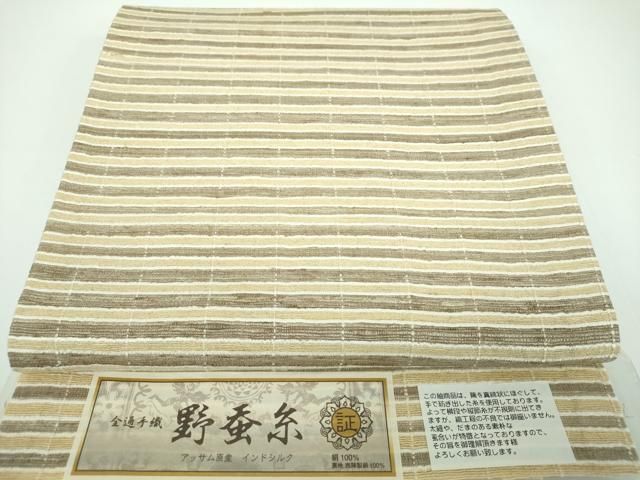 全通手織
野蚕糸
証
アッサム原産 インドシルク
絹100%
裏地:西陣製絹100%
この紬商品は、繭を真綿状にほぐして、
手で紡ぎ出した糸を使用しております。
よって横段や縦節糸が不規則に出てき
ますが、織工程の不良では御座いません。
太細や、だまのある素朴な
風合いが特徴となっておりますので、
その旨を御理解頂きます様
よろしくお願い致します。